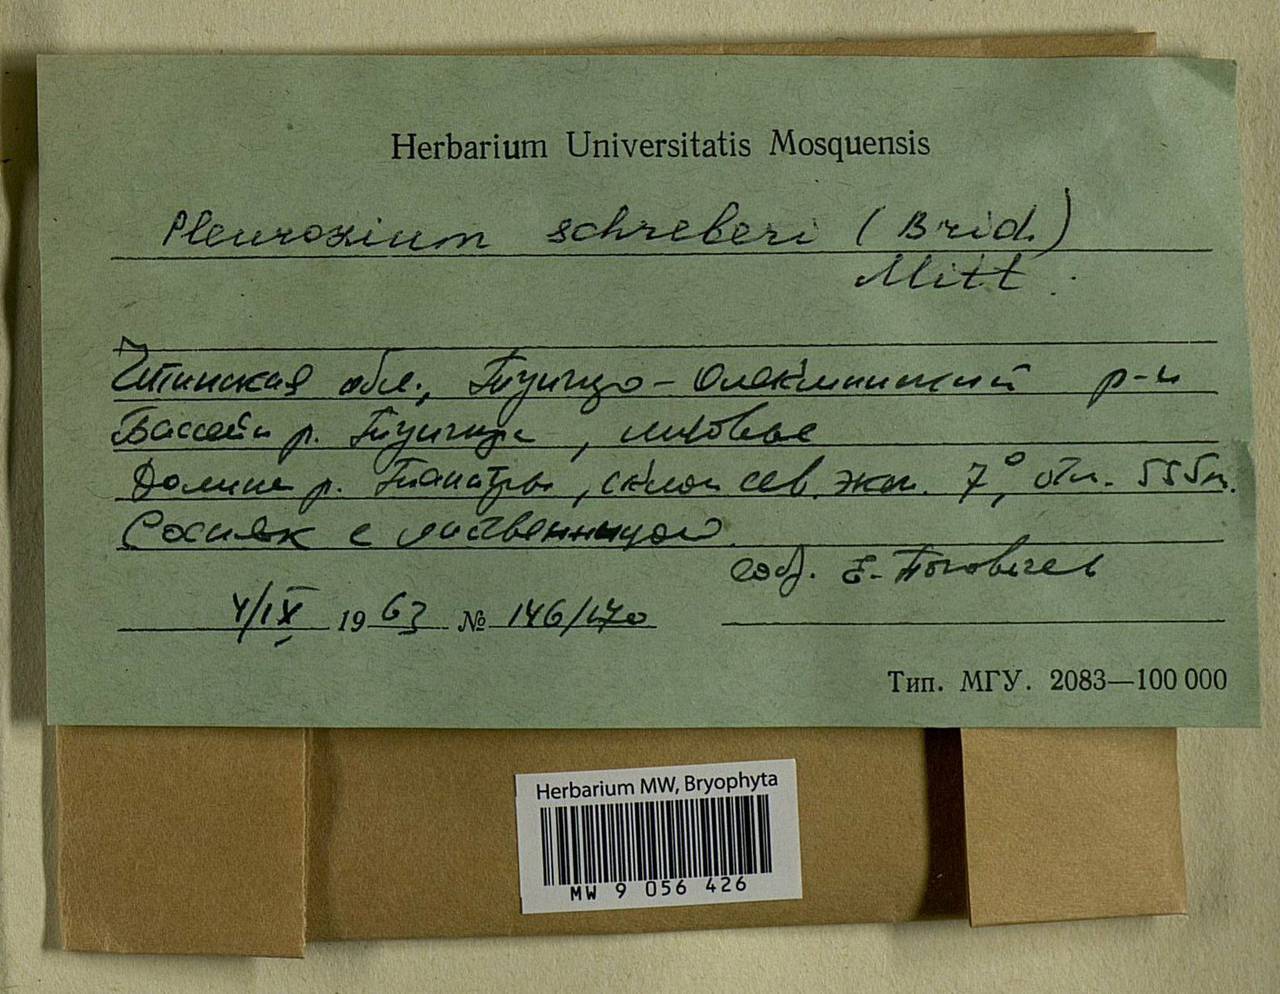 Herbarium Universitatis Mosquensis
Pleurozium schreberi (Brid.)
Mitt.
Читинская обл., Тунгиро-Олекминский р-н
Бассейн р. Тунгира, низовье
Долина р., склон сев. экп. 7°, отл. 555м.
Сосняк с лиственницей
собр. Е.
4/IX 1963 № 146/170
Тип. МГУ. 2083—100 000
Herbarium MW, Bryophyta
MW 9 056 426